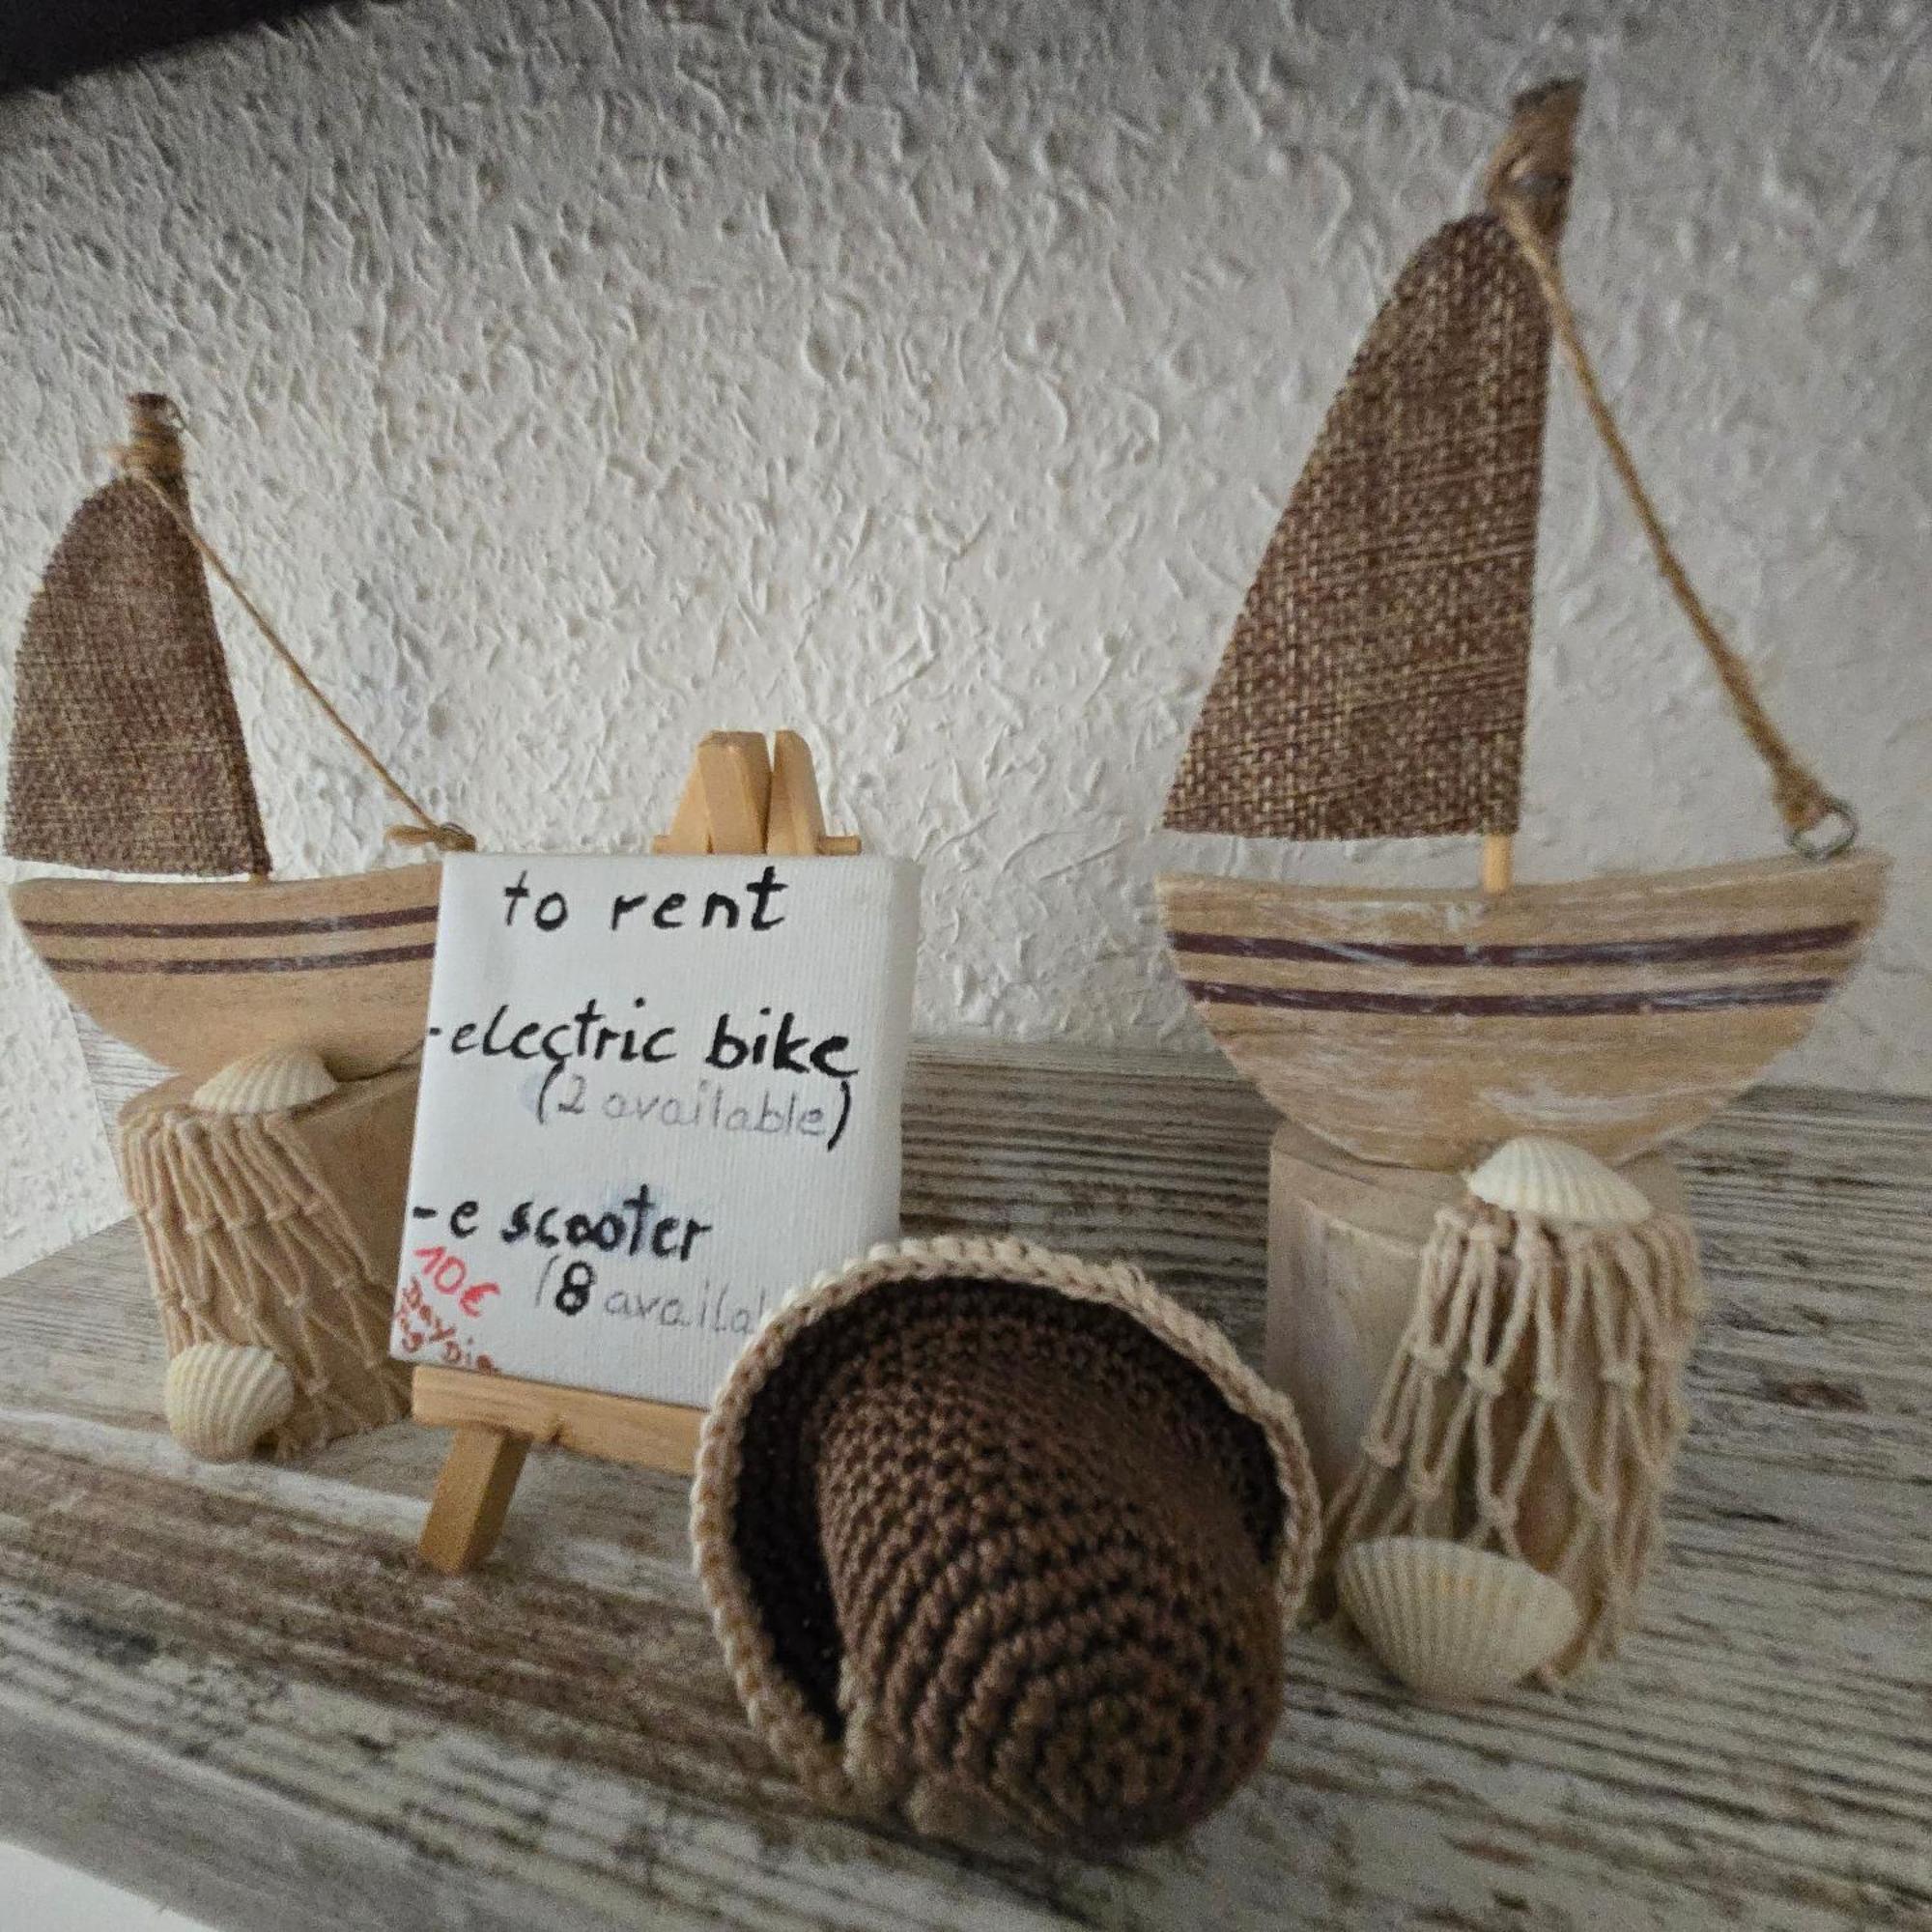 to rent
-electric bike
(2 available)
-e scooter
10€ (8 availa
Day/Dia